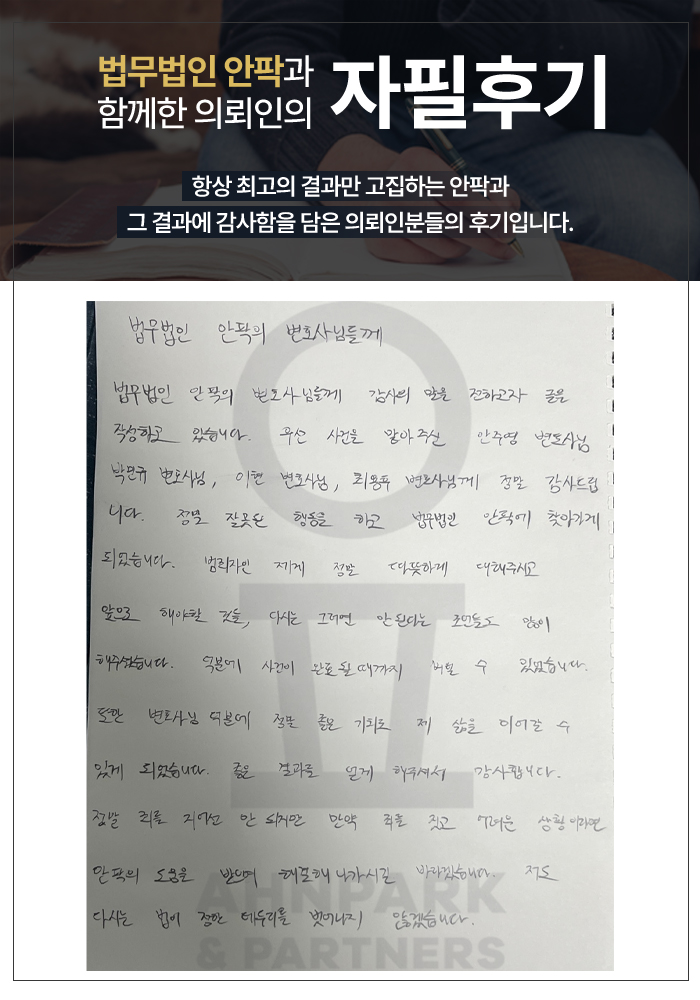 법무법인 안팍과
함께한 의뢰인의
자필후기
항상 최고의 결과만 고집하는 안팍과
그 결과에 감사함을 담은 의뢰인분들의 후기입니다.
법무법인 안팍의 변호사님들께
법무법인 안팍의 변호사님들께 감사의 말을 전하고자 글을
작성하고 있습니다. 우선 사건을 맡아주신 안주영 변호사님
박민규 변호사님, 이현 변호사님, 최용표 변호사님께 정말 감사드립
니다. 정말 잘못된 행동을 하고 법무법인 안팍에 찾아가게
되었습니다. 범죄자인 저에게 정말 따뜻하게 대해주시고
앞으로 해야할 것들, 다시는 그러면 안된다는 조언들도 많이
해주셨습니다. 덕분에 사건이 완료될때까지 버틸 수 있었습니다.
또한 변호사님 덕분에 정말 좋은 기회로 제 삶을 이어갈 수
있게 되었습니다. 좋은 결과를 얻게 해주셔서 감사합니다.
정말 죄를 지어선 안 되지만 만약 죄를 짓고 어려운 상황이라면
안팍의 도움을 받으며 해결해나가시길 바라겠습니다. 저도
다시는 법에 정한 테두리를 벗어나지 않겠습니다.
AHNPARK
& PARTNERS